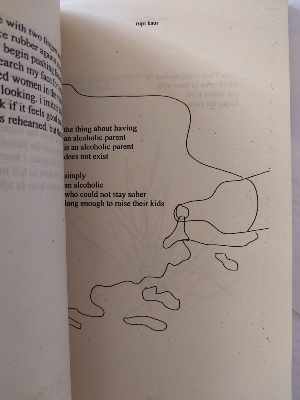 e with two fingers
ke rubber against
begin pushing
earch my face for
ed women in the
looking. i imitate
k if it feels good
s rehearsed. but
rupi kaur
the thing about having
an alcoholic parent
is an alcoholic parent
does not exist
simply
an alcoholic
who could not stay sober
long enough to raise their kids